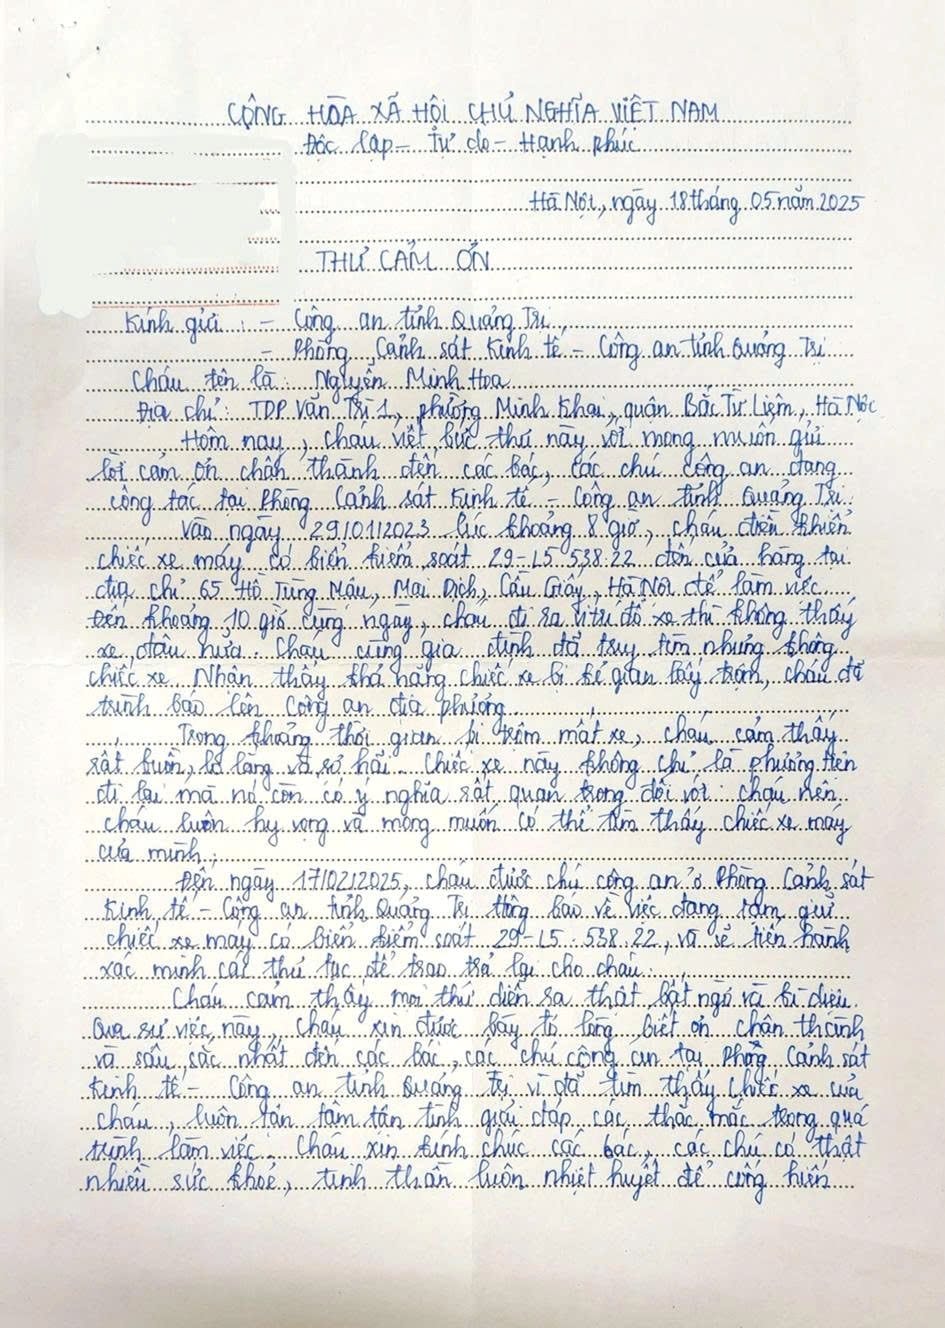 CỘNG HÒA XÃ HỘI CHỦ NGHĨA VIỆT NAM
Độc lập - Tự do - Hạnh phúc
Hà Nội, ngày 18 tháng 05 năm 2025
THƯ CẢM ƠN
Kính gửi : - Công an tỉnh Quảng Trị
- Phòng Cảnh sát Kinh tế - Công an tỉnh Quảng Trị
Cháu tên là: Nguyễn Minh Hoa
Địa chỉ: TDP Văn Trì 1, phường Minh Khai, quận Bắc Từ Liêm, Hà Nội
Hôm nay, cháu viết bức thư này với mong muốn gửi
lời cảm ơn chân thành đến các bác, các chú công an đang
công tác tại Phòng Cảnh sát Kinh tế - Công an tỉnh Quảng Trị.
Vào ngày 29/01/2023 lúc khoảng 8 giờ, cháu điều khiển
chiếc xe máy có biển kiểm soát 29-L5 538.22 đến cửa hàng tại
địa chỉ 65 Hồ Tùng Mậu, Mai Dịch, Cầu Giấy, Hà Nội để làm việc.
Đến khoảng 10 giờ cùng ngày, cháu đi ra vị trí đỗ xe thì không thấy
xe đâu nữa. Cháu cùng gia đình đã truy tìm nhưng không
chiếc xe. Nhận thấy khả năng chiếc xe bị kẻ gian lấy trộm, cháu đã
trình báo lên Công an địa phương.
Trong khoảng thời gian bị trộm mất xe, cháu cảm thấy
rất buồn, lo lắng và sợ hãi. Chiếc xe này không chỉ là phương tiện
đi lại mà nó còn có ý nghĩa rất quan trọng đối với cháu nên
cháu luôn hy vọng và mong muốn có thể tìm thấy chiếc xe máy
của mình.
Đến ngày 17/02/2025, cháu được chú công an ở Phòng Cảnh sát
Kinh tế - Công an tỉnh Quảng Trị thông báo về việc đang tạm giữ
chiếc xe máy có biển kiểm soát 29-L5 538.22, và sẽ tiến hành
xác minh các thủ tục để trao trả lại cho cháu.
Cháu cảm thấy mọi thứ diễn ra thật bất ngờ và kì diệu.
Qua sự việc này, cháu xin được bày tỏ lòng biết ơn chân thành
và sâu sắc nhất đến các bác, các chú công an tại Phòng Cảnh sát
Kinh tế - Công an tỉnh Quảng Trị vì đã tìm thấy chiếc xe của
cháu, luôn tận tâm tận tình giải đáp các thắc mắc trong quá
trình làm việc. Cháu xin kính chúc các bác, các chú có thật
nhiều sức khoẻ, tinh thần luôn nhiệt huyết để cống hiến